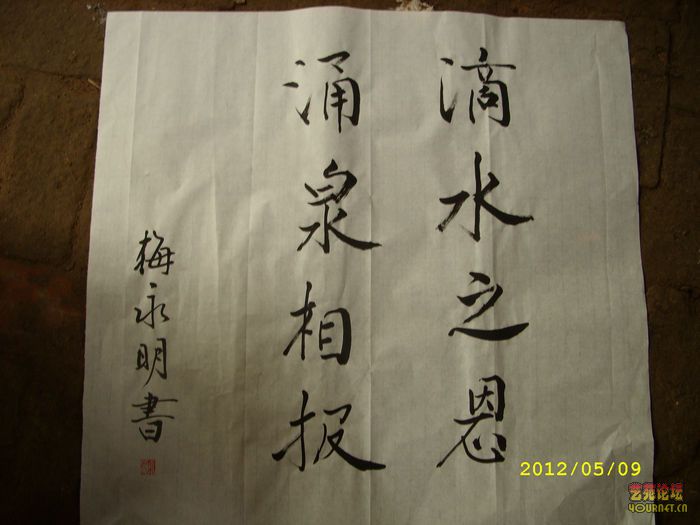 滴水之恩
涌泉相报
梅永明書
2012/05/09
艺苑论坛
YOURNET.CN